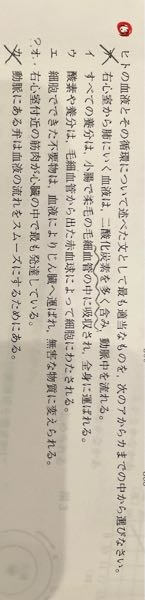 ヒトの血液とその循環について述べた文として最も適当なものを、次のアからカまでの中から選びなさい。
ア 右心室から肺にいく血液は、二酸化炭素を多く含み、動脈中を流れる。
イ すべての養分は、小腸で柔毛の毛細血管の中に吸収され、全身に運ばれる。
ウ 酸素や養分は、毛細血管から出た赤血球によって細胞にわたされる。
エ 細胞でできた不要物は、血液によりじん臓へ運ばれ、無害な物質に変えられる。
オ 右心室付近の筋肉が心臓の中で最も発達している。
カ 動脈にある弁は血液の流れをスムーズにするためにある。